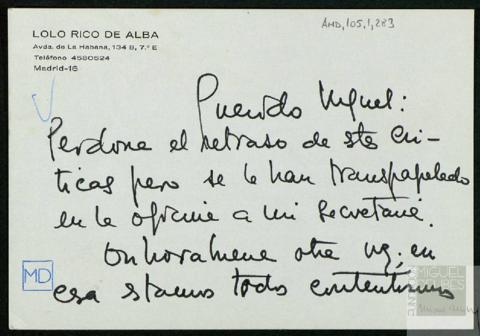 LOLO RICO DE ALBA
Avda. de La Habana, 134 B, 7.º E
Teléfono 4580524
Madrid-16
AMD, 105, 1, 283
Querido Miguel:
Perdona el retraso de stas crí-
ticas pero se le han transpapelado
en la oficina a mi secretaria.
Enhorabuena otra vez; en
casa estamos todos contentísimos
MD
FUNDACIÓN
MIGUEL
DELIBES